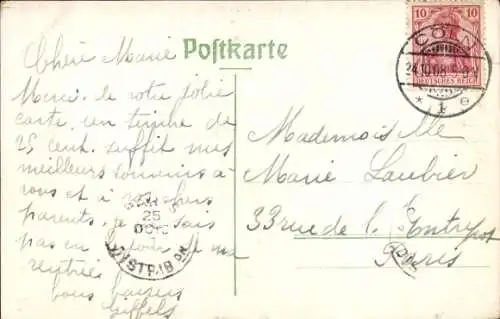 Postkarte
10 10
DEUTSCHES REICH
CÖLN
24.10.08
* 1 e
Chère Marie
Merci de votre jolie
carte un timbre de
25 cent. suffit mes
meilleurs souvenirs à
vous et à vos chers
parents, je ne sais
pas en
rentrée
bons baisers
25
OCT
DISTRIB ON
Mademoiselle
Marie Laubier
33 rue de l'Entrepot
Paris